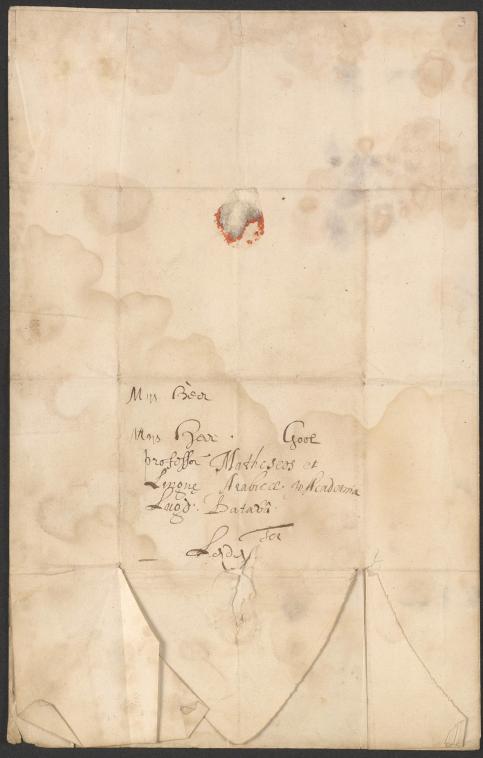 3
Mijn Heer
Mijn Heer. Gool
professor Matheseos et
Linguę Arabicæ in Academia
Lugd. Batavâ.
Ter
Leyden